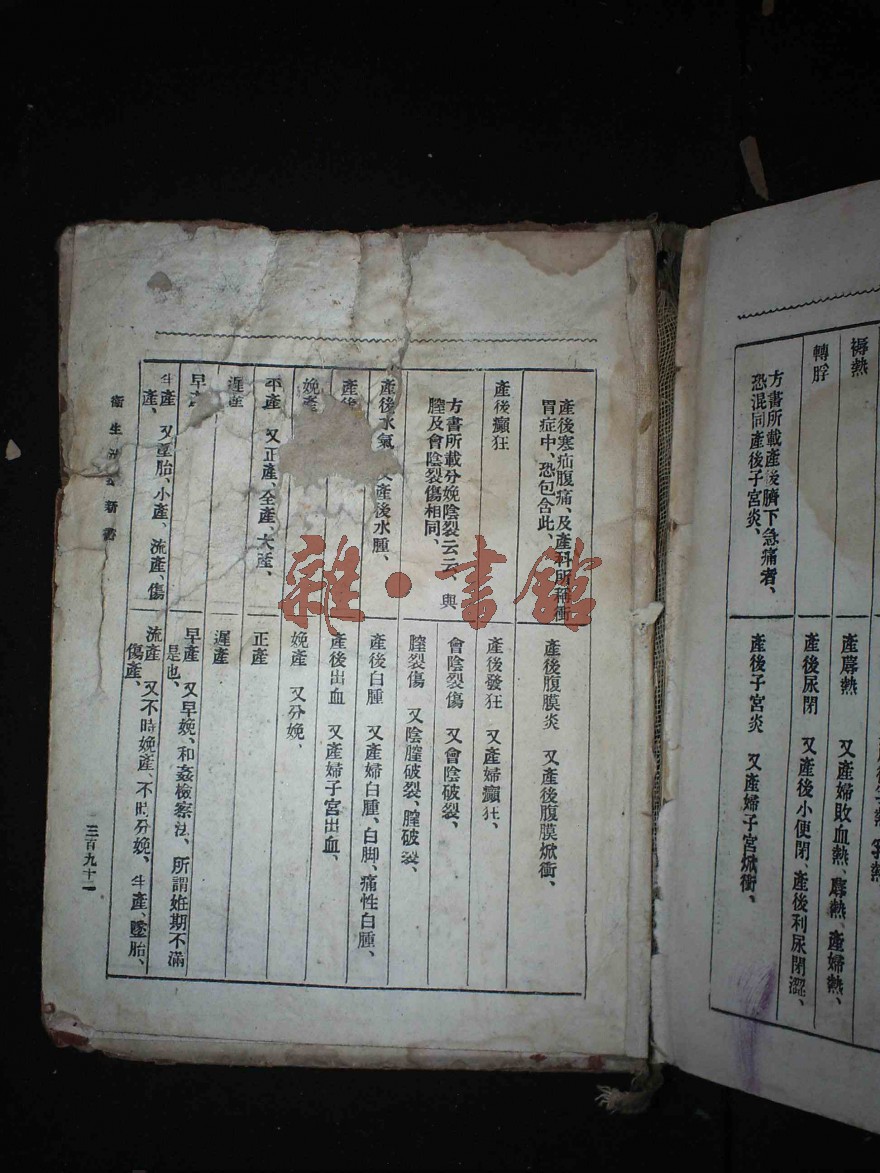 褥熱
產後尿閉 又產後小便閉、產後利尿閉澀、
產蓐熱 又產婦敗血熱、蓐熱、產婦熱、
轉脬
方書所載產後臍下急痛者、
恐混同產後子宮炎、
產後子宮炎 又產婦子宮焮衝、
產後寒疝腹痛、及產科所稱衝
胃症中、恐包含此、
產後腹膜炎 又產後腹膜焮衝、
產後癲狂
產後發狂 又產婦癲狂、
方書所載分娩陰裂云云、與
膣及會陰裂傷相同、
會陰裂傷 又會陰破裂、
膣裂傷 又陰膣破裂、膣破裂、
產後水氣 又產後水腫、
產後白腫 又產婦白腫、白脚、痛性白腫、
產後
產後出血 又產婦子宮出血、
娩產
娩產 又分娩、
平產 又正產、全產、大產、
正產
遲產
遲產
早產
早產 又早娩、和姦檢察法、所謂姙期不滿
是也、
半產 又墮胎、小產、流產、傷
產、
流產 又不時娩產、不時分娩、半產、墜胎、
傷產、
衛生 新書
三百九十二
雜·書館